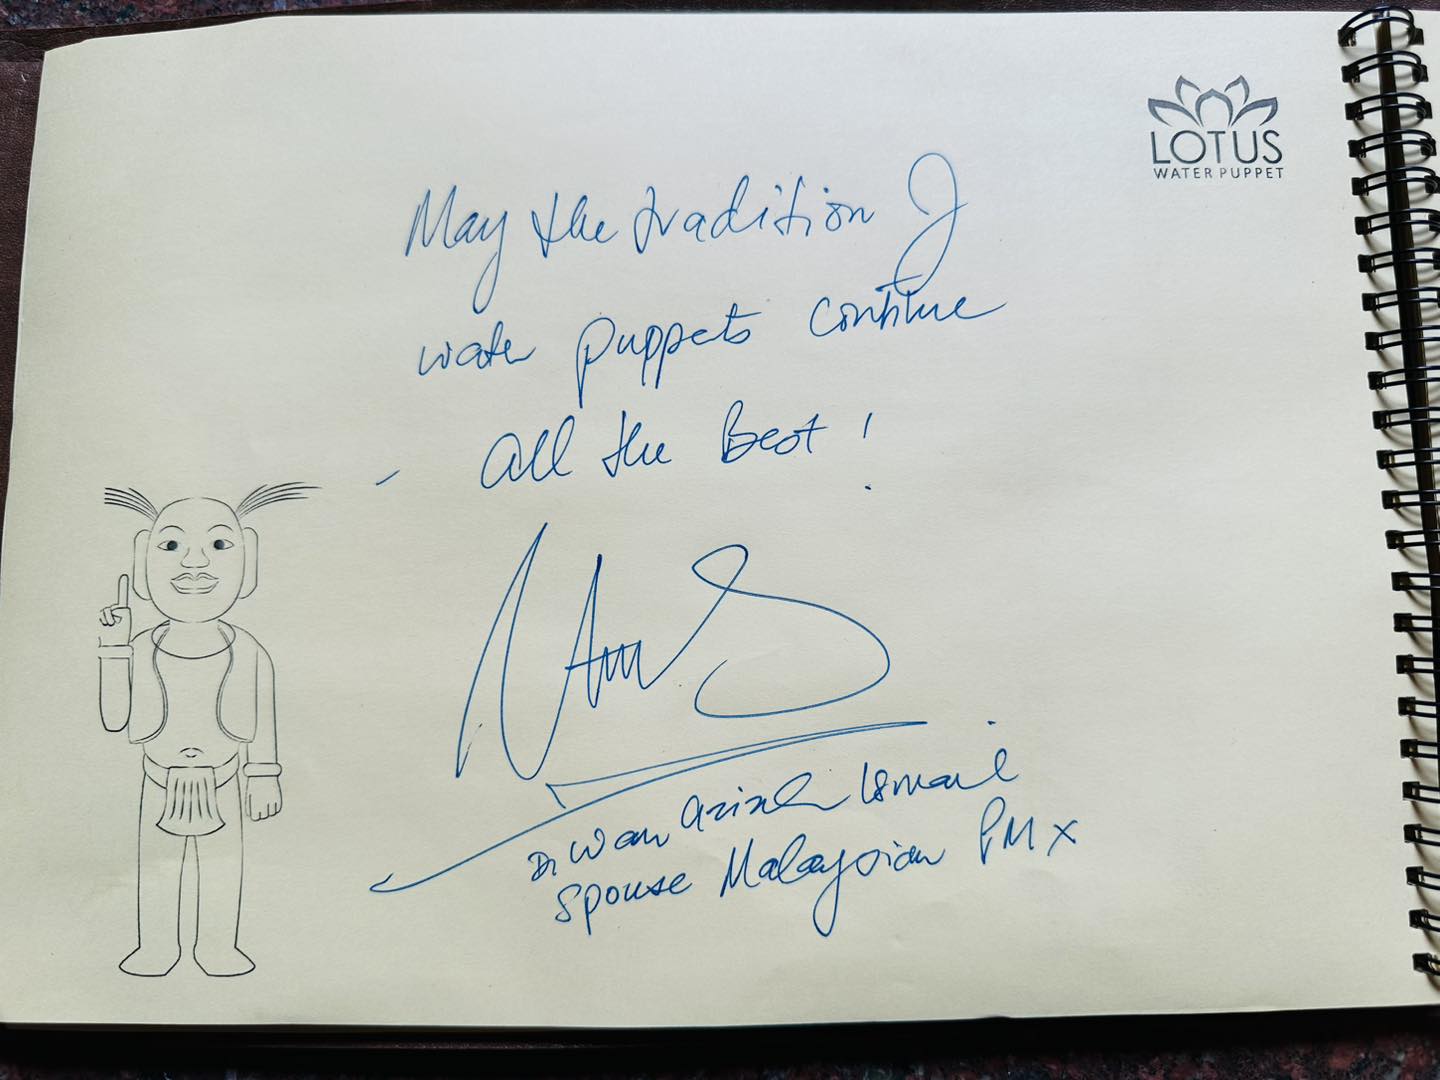 LOTUS
WATER PUPPET
May the tradition of
water puppets continue
- All the Best!
Dr Wan Azizah Ismail
Spouse Malaysian PM X